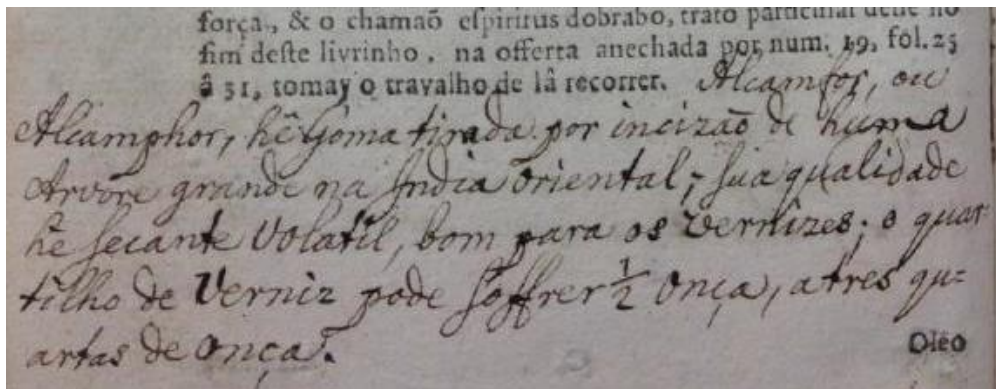 força, & o chamaõ eſpiritus dobrabo, trato particular delle no
fim deſte livrinho, na offerta anechada por num. 19, fol. 25
â 31, tomay o travalho de lâ recorrer. Alcamfor, ou
Alcamphor, hê Goma tirada por incizaõ de huma
Arvore grande na India Oriental; ſua qualidade
hê ſecante Volatil, bom para os Vernizes; o quar
tilho de Verniz pode ſoffrer 1/2 Onça, a tres qu=
artas de Onça.
Oleo